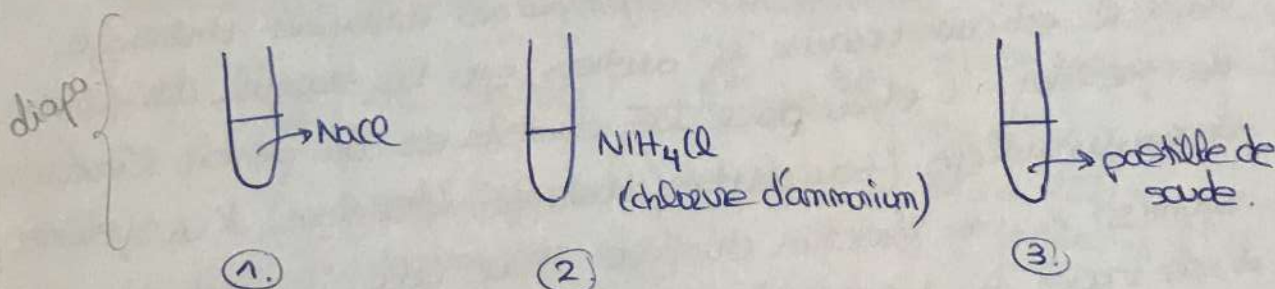 diapo
NaCl
NH4Cl
(chlorure d'ammonium)
pastille de
soude.
1.
2.
3.